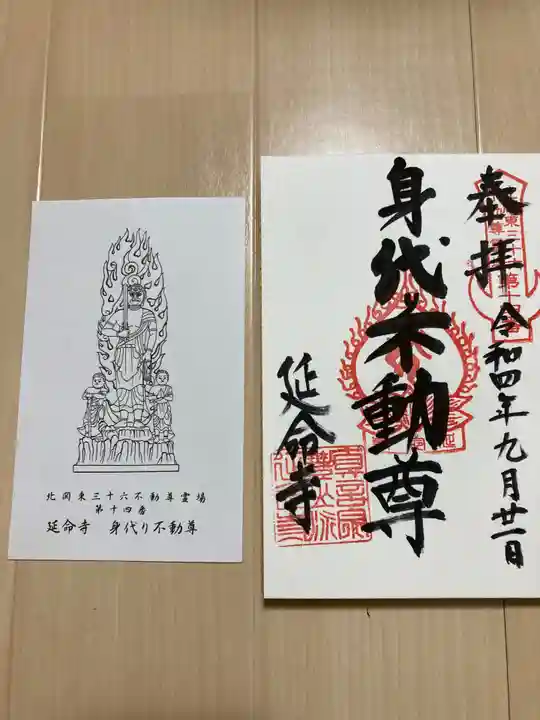 北関東三十六不動尊霊場
第十四番
延命寺 身代り不動尊
奉拝
令和四年九月廿一日
身代不動尊
延命寺